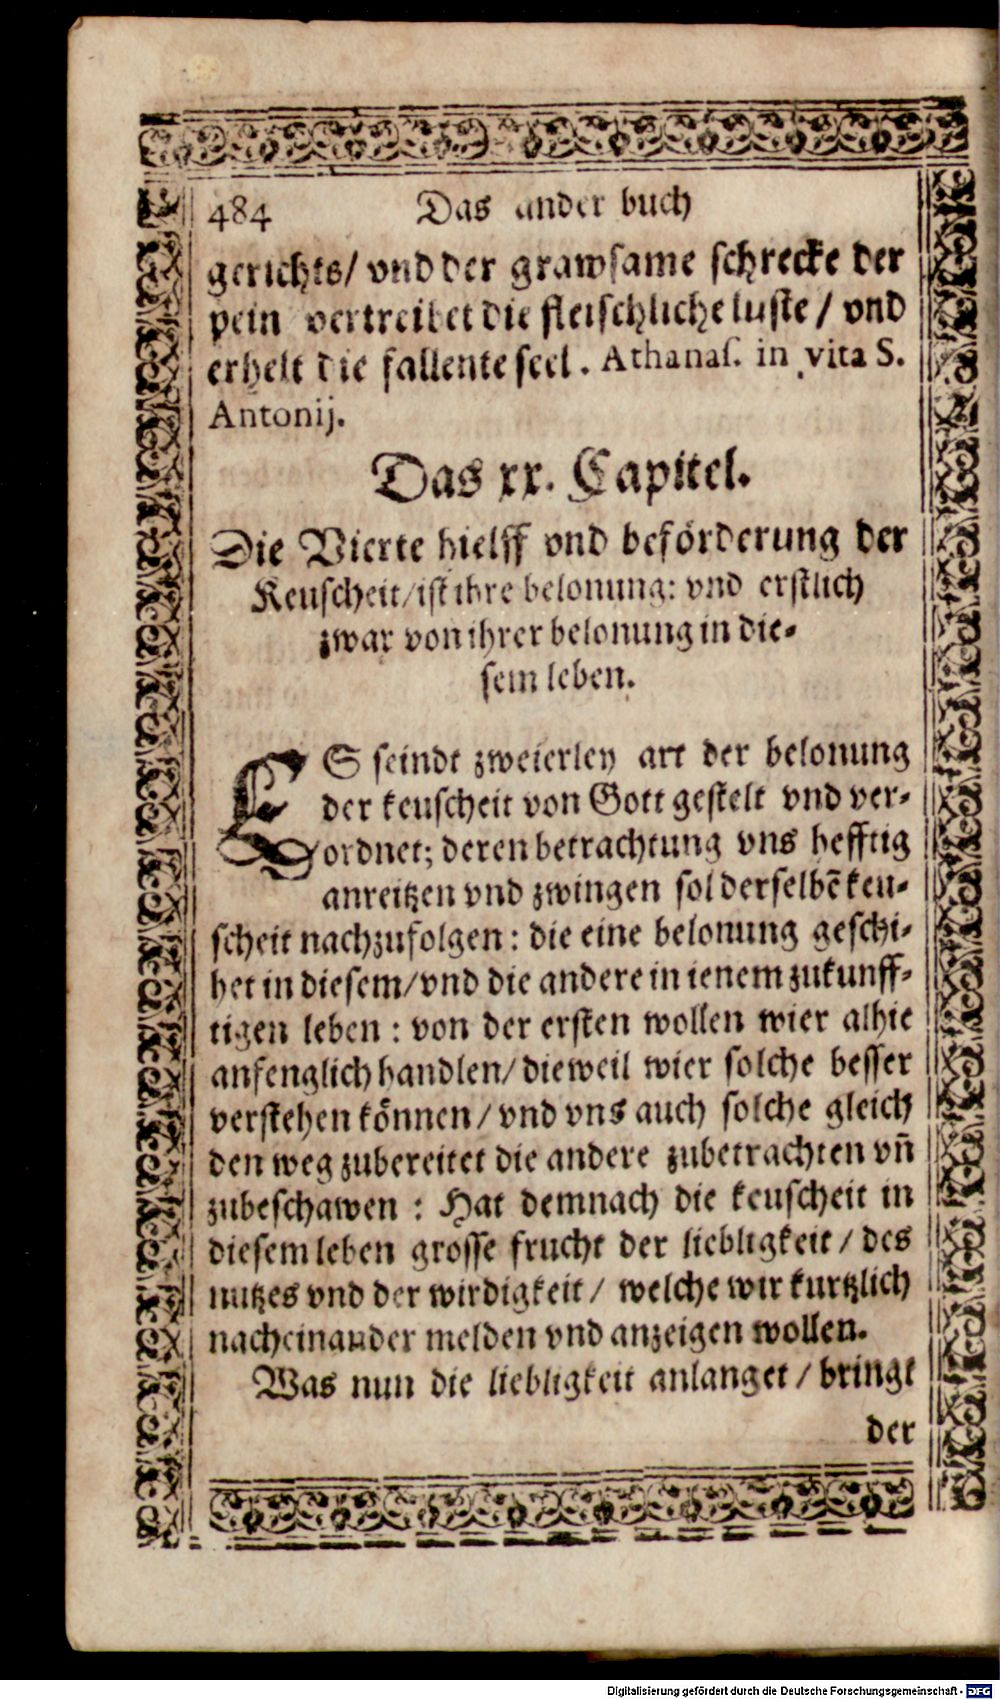 484 Das ander buch
gerichts/ vnd der grawsame schrecke der
pein vertreibet die fleischliche luste / vnd
erhelt die fallente seel. Athanas. in vita S.
Antonij.
Das xx. Capitel.
Die Vierte hielff vnd beförderung der
Keuscheit/ist ihre belonung: vnd erstlich
zwar von ihrer belonung in die-
sem leben.
ES seindt zweierley art der belonung
der keuscheit von Gott gestelt vnd ver-
ordnet; deren betrachtung vns hefftig
anreitzen vnd zwingen sol derselbē keu-
scheit nachzufolgen: die eine belonung geschi-
het in diesem/vnd die andere in ienem zukunff-
tigen leben: von der ersten wollen wier alhie
anfenglich handlen/dieweil wier solche besser
verstehen können/vnd vns auch solche gleich
den weg zubereitet die andere zubetrachten vn̄
zubeschawen: Hat demnach die keuscheit in
diesem leben grosse frucht der liebligkeit / des
nutzes vnd der wirdigkeit / welche wir kurtzlich
nacheinander melden vnd anzeigen wollen.
Was nun die liebligkeit anlanget / bringt
der
Digitalisierung gefördert durch die Deutsche Forschungsgemeinschaft - DFG